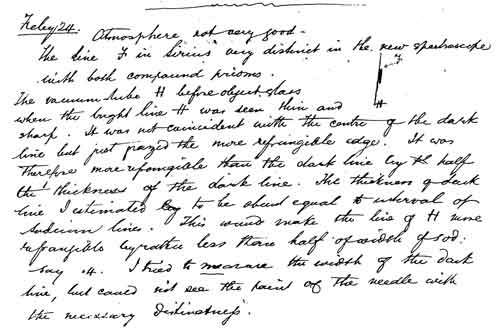 Feby 24. Atmosphere not very good -
The line F in Sirius very distinct in the new spectroscope
with both compound prisms.
F
The vacuum tube H before object-glass
H
when the bright line H was seen thin and
sharp. It was not coincident with the centre of the dark
line but just passed the more refrangible edge. It was
therefore more refrangible than the dark line by half
the thickness of the dark line. The thickness of dark
line I estimated to be about equal to interval of
sodium lines. This would make the line of H more
refrangible by rather less than half of width of sod:
say .4. I tried to measure the width of the dark
line, but could not see the point of the needle with
the necessary distinctness.